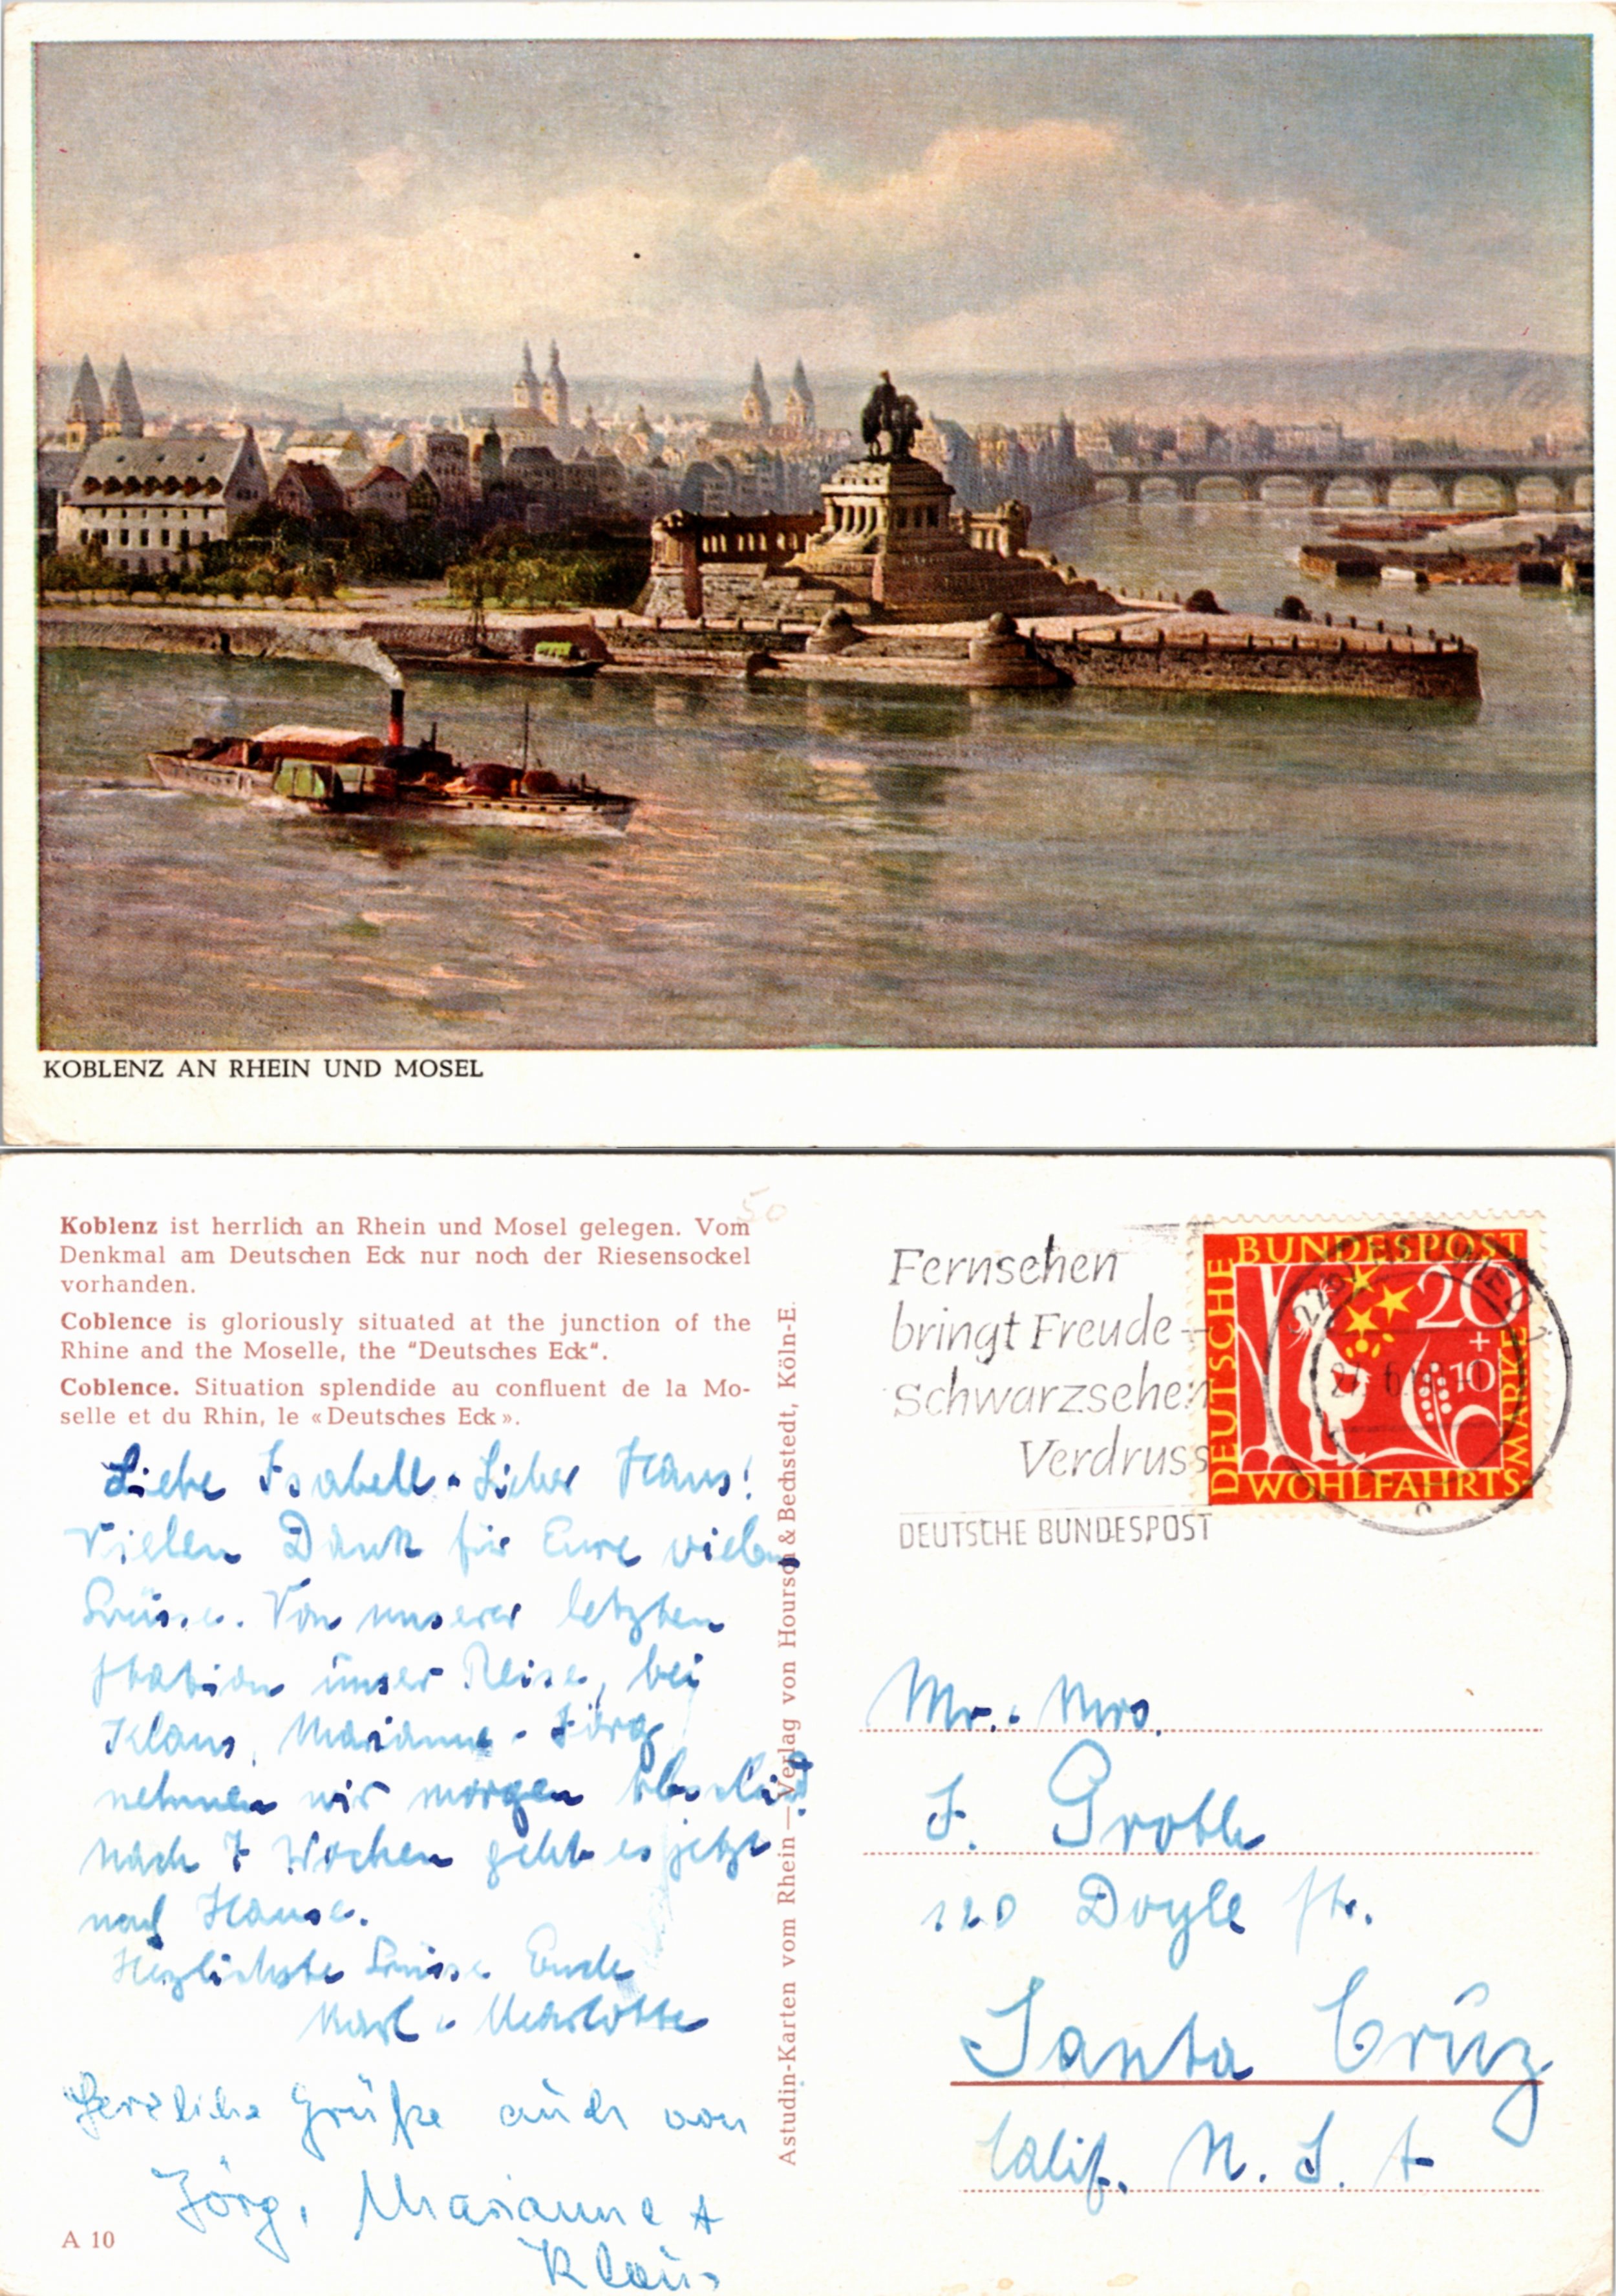 KOBLENZ AN RHEIN UND MOSEL
50
Koblenz ist herrlich an Rhein und Mosel gelegen. Vom
Denkmal am Deutschen Eck nur noch der Riesensockel
vorhanden.
Coblence is gloriously situated at the junction of the
Rhine and the Moselle, the "Deutsches Eck".
Coblence. Situation splendide au confluent de la Mo-
selle et du Rhin, le «Deutsches Eck».
Liebe Isabell. Lieber Hans!
Vielen Dank für Eure vielen
Grüsse. Von unserer letzten
Station unser Reise, bei
Klaus, Marianne - Jörg
nehmen wir morgen Abschied
Nach 7 Wochen geht es jetzt
nach Hause.
Herzlichste Grüsse Eure
Karl u Liselotte
Herzliche Grüße auch von
Jörg, Marianne +
Klaus
A 10
Astudin-Karten vom Rhein — Verlag von Hoursch & Bechstedt, Köln-E.
Fernsehen
bringt Freude -
Schwarzsehen
Verdruss
DEUTSCHE BUNDESPOST
DEUTSCHE BUNDESPOST
20
+
10
WOHLFAHRTS-MARKE
Mr. Mrs.
J. Groth
120 Doyle Str.
Santa Cruz
Calif. U. S. A